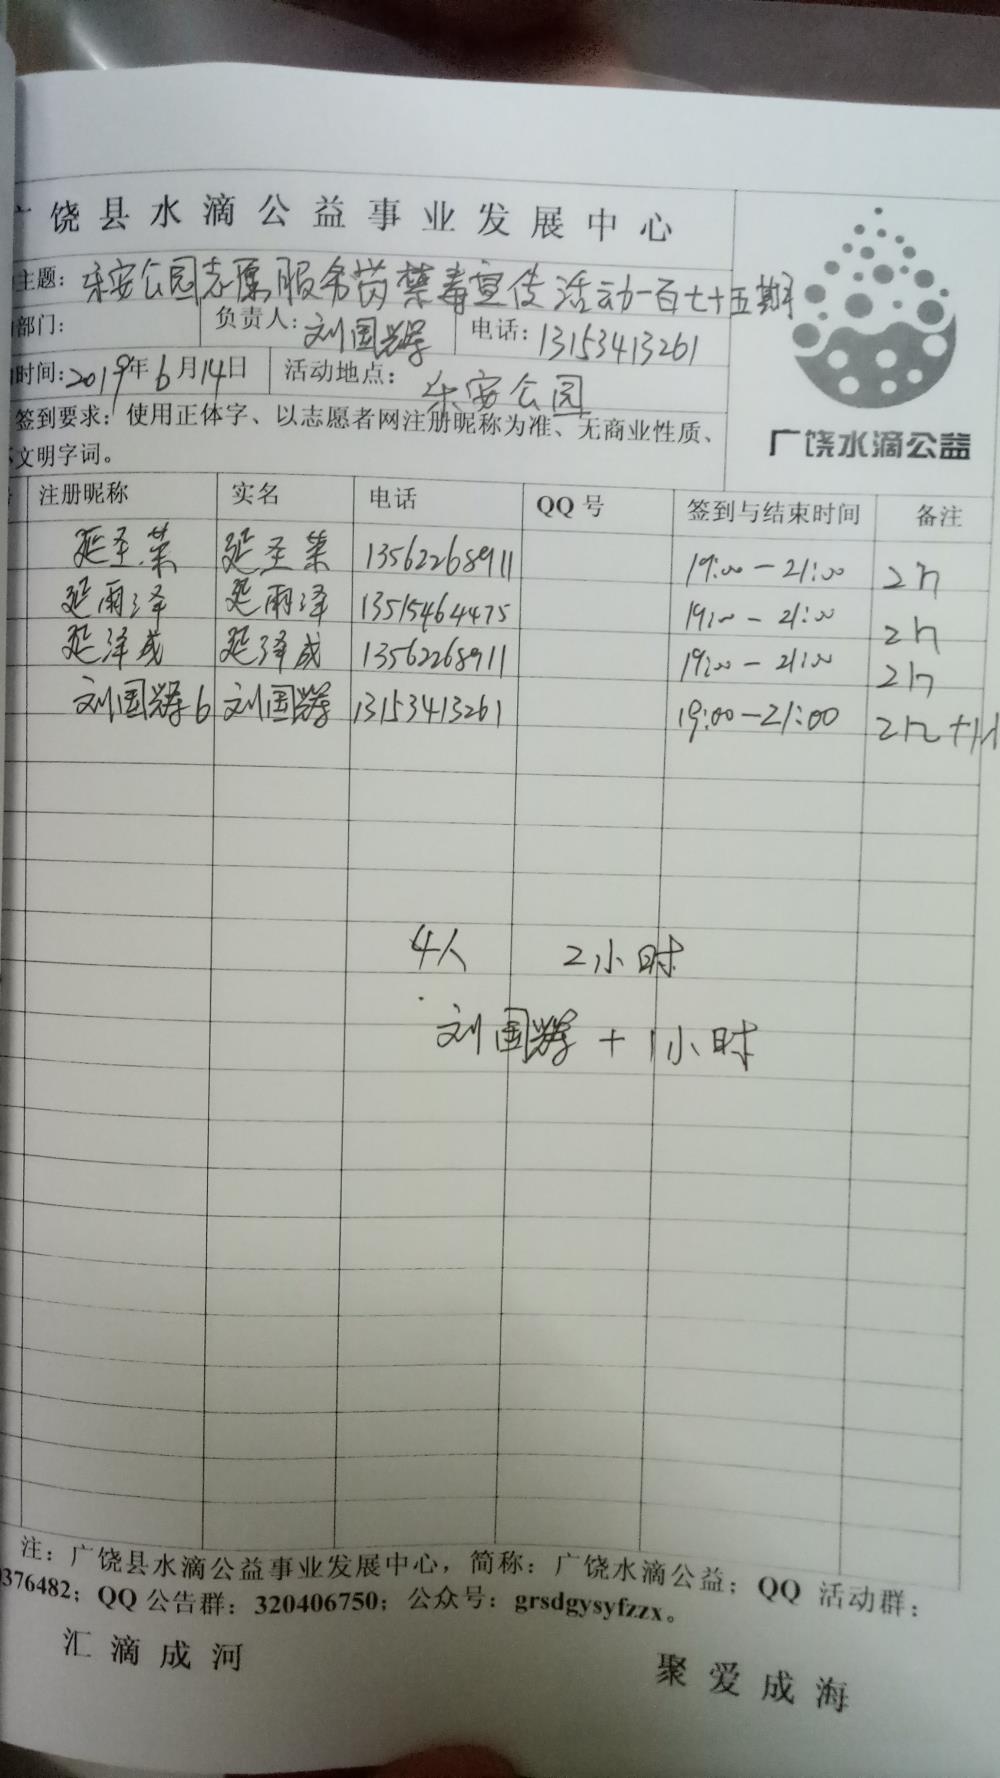 饶县水滴公益事业发展中心
主题：乐安公园志愿服务岗禁毒宣传活动一百七十五期
部门： 负责人：刘国辉 电话：13153413261
时间：2019年6月14日 活动地点：乐安公园
签到要求：使用正体字、以志愿者网注册昵称为准、无商业性质、
文明字词。
广饶水滴公益
注册昵称 实名 电话 QQ号 签到与结束时间 备注
延圣荣 延圣荣 13562268911 19:00-21:00 2h
延雨泽 延雨泽 13515464475 19:00-21:00 2h
延泽成 延泽成 13562268911 19:00-21:00 2h
刘国辉6 刘国辉 13153413261 19:00-21:00 2h+1h
4人 2小时
刘国辉+1小时
注：广饶县水滴公益事业发展中心，简称：广饶水滴公益；QQ 活动群：
376482；QQ公告群：320406750；公众号：grsdgysyfzzx。
汇滴成河 聚爱成海